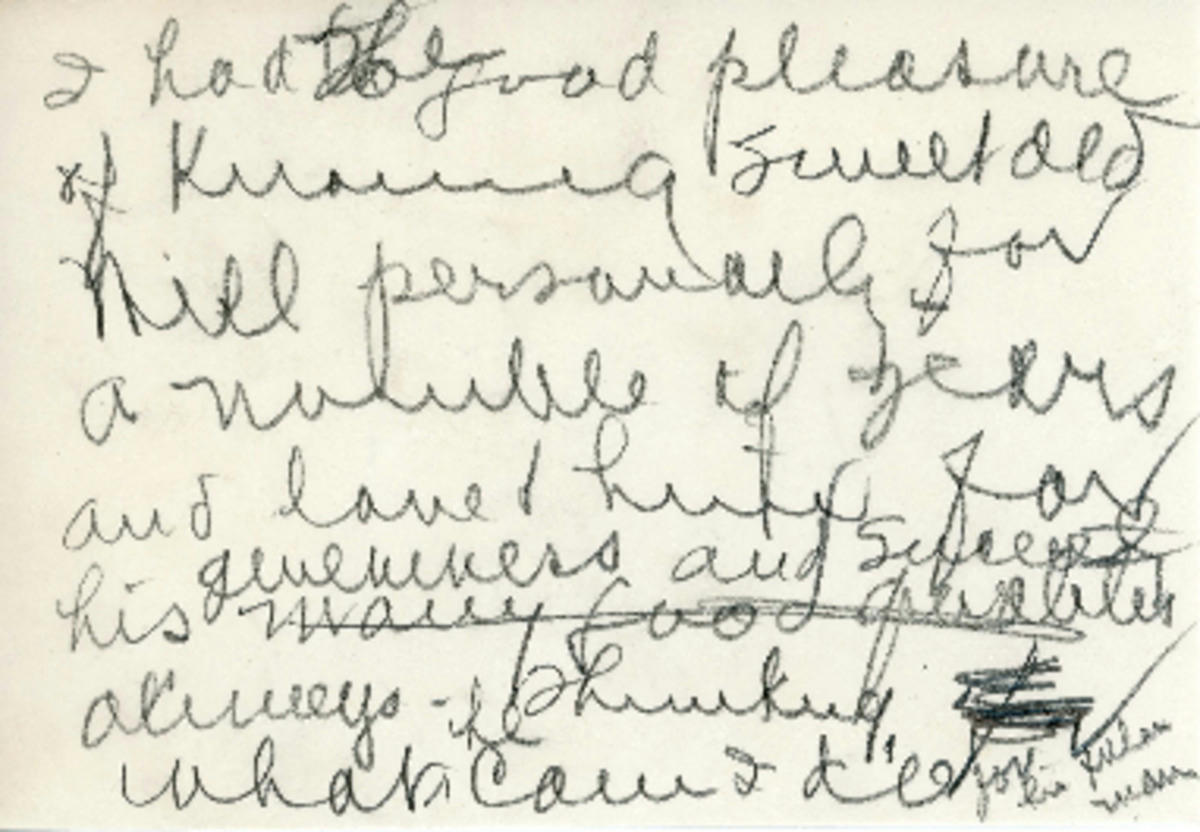 I had the good pleasure
of knowing sweet old
Will personally for
a number of years
and loved him for
genuineness and
his many good qualities
always - he thinking
what can I do for
his fellow
man